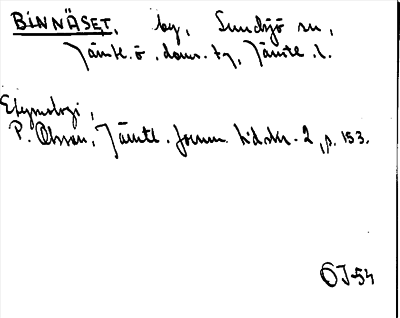 BINNÄSET, by, Sundsjö sn,
Jämtl. ö. doms. tg, Jämtl. l.
Etymologi,
P. Olsson, Jämtl. fornm. tidskr. 2, p. 153.
ÖJ-54